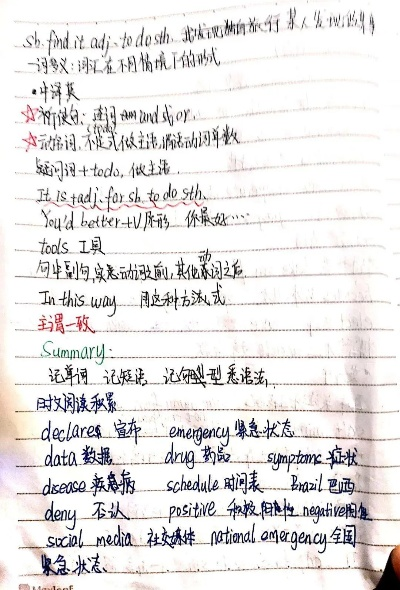 sb. find it adj. to do sth.
一词多义:词汇在不同情境下的形式
·中译英
☆祈使句:连词 and or.
☆动名词,不定式(to do)做主语,谓语动词单数
疑问词+to do,做主语
It is +adj. for sb. to do sth.
You'd better+V原形 你最好……
tools 工具
句中副词,实意动词之前,其他动词之后
In this way 用这种方式
主谓一致
Summary:
记单词 记短语 记句型 悉语法,
时文阅读积累
declare 宣布 emergency 紧急状态
data 数据 drug 药品 symptoms 症状
disease 疾病 schedule 时间表 Brazil 巴西
deny 否认 positive 积极 阳性 negative 阴性
social media 社交媒体 national emergency 全国
紧急状态